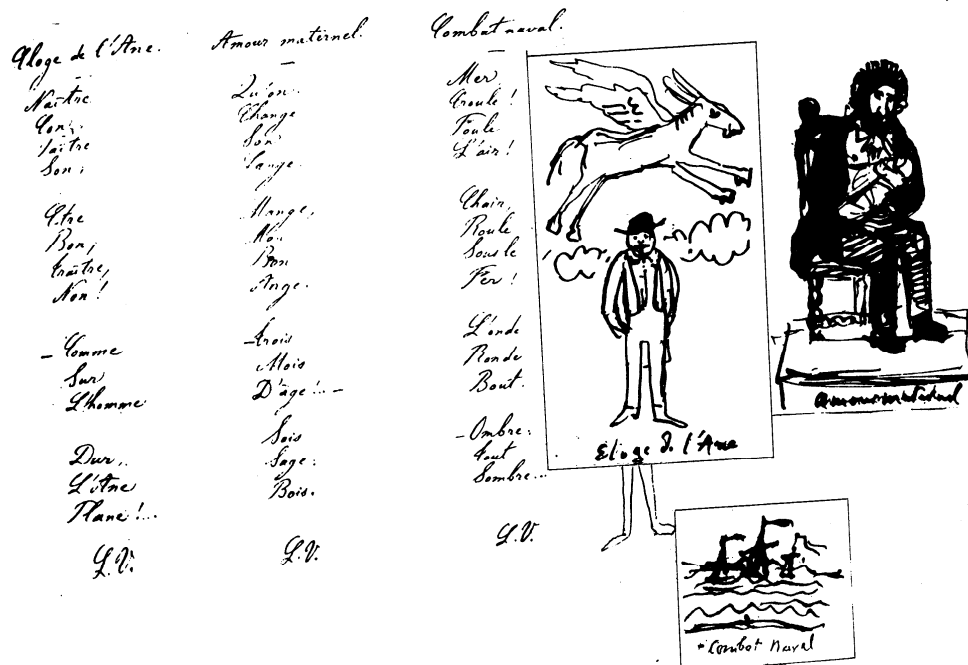 Eloge de l'Ane.
Naître
Con,
Paître
Son ;
Etre
Bon,
Traître,
Non !
– Comme
Sur
L'homme
Dur,
L'Ane
Plane !...
L.V.
Amour maternel.
Qu'on
Change
Son
Lange.
Mange,
Mon
Bon
Ange.
– Trois
Mois
D'âge !.. –
Sois
Sage :
Bois.
L.V.
Combat naval.
Mer
Croule !
Foule
L'air !
Chair,
Roule
Sous le
Fer !
L'onde
Ronde
Bout.
– Ombre :
Tout
Sombre...
L.V.
Eloge de l'Ane
Combat Naval